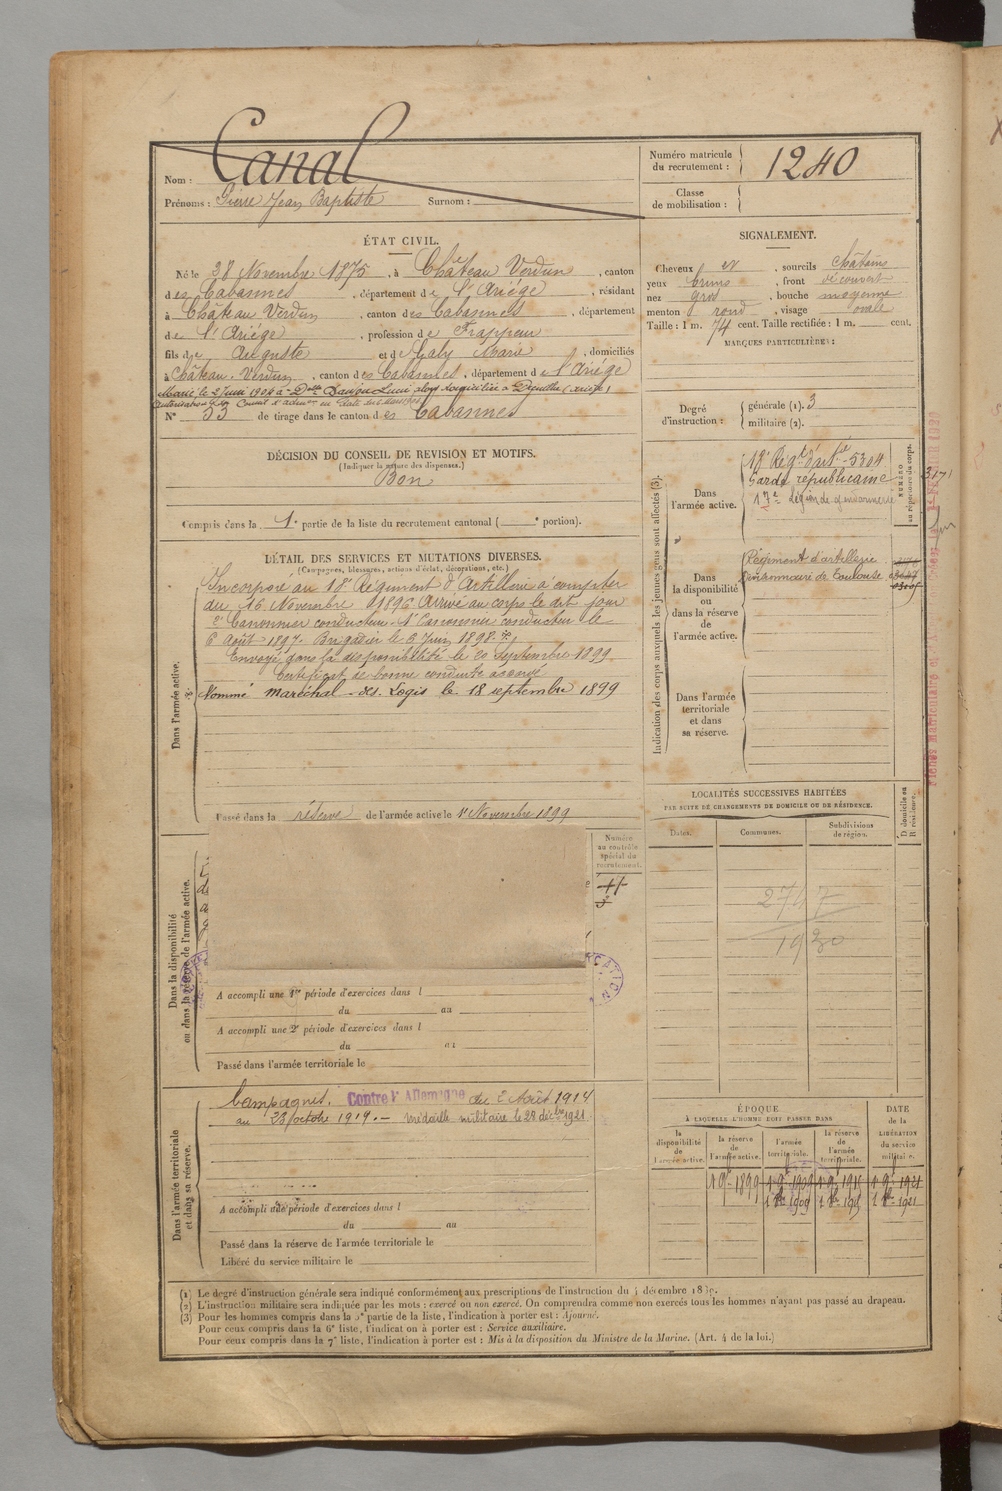 Nom : Canal
Prénoms : Pierre Jean Baptiste Surnom :
Numéro matricule du recrutement : 1240
Classe de mobilisation :
ÉTAT CIVIL.
Né le 28 Novembre 1875, à Château Verdun, canton
des Cabannes, département de l'Ariège, résidant
à Château Verdun, canton des Cabannes, département
de l'Ariège, profession de Frappeur
fils de Auguste et de Galy Marie, domiciliés
à Château-Verdun, canton des Cabannes, département de l'Ariège
Marié le 2 Juin 1904 à Delle
N° 53 de tirage dans le canton des Cabannes
SIGNALEMENT.
Cheveux et , sourcils châtains
yeux bruns, front découvert
nez gros, bouche moyenne
menton rond, visage ovale
Taille : 1 m. 74 cent. Taille rectifiée : 1 m. cent.
MARQUES PARTICULIÈRES :
Degré d'instruction : générale (1). 3
militaire (2).
DÉCISION DU CONSEIL DE REVISION ET MOTIFS.
(Indiquer la nature des dispenses.)
Bon
Compris dans la 1e partie de la liste du recrutement cantonal ( e portion).
DÉTAIL DES SERVICES ET MUTATIONS DIVERSES.
(Campagnes, blessures, actions d'éclat, décorations, etc.)
Dans l'armée active.
Incorporé au 18e Régiment d'Artillerie à compter
du 16 Novembre 1896 Arrivé au corps le dit jour
2e Canonnier conducteur. 1er Canonnier conducteur le
6 Août 1897. Brigadier le 6 Juin 1898.
Envoyé dans la disponibilité le 20 Septembre 1899
Certificat de bonne conduite accordé
Nommé maréchal-des-Logis le 18 septembre 1899
Passé dans la réserve de l'armée active le 1er Novembre 1899
Indication des corps auxquels les jeunes gens sont affectés (3).
Dans l'armée active.
18e Régt d'artie - 5304
Garde républicaine
17e Légion de gendarmerie
NUMÉRO
au répertoire du corps.
Dans la disponibilité ou dans la réserve de l'armée active.
Régiment d'artillerie
de Toulouse
Dans l'armée territoriale et dans sa réserve.
LOCALITÉS SUCCESSIVES HABITÉES
PAR SUITE DE CHANGEMENTS DE DOMICILE OU DE RÉSIDENCE.
Dates. Communes. Subdivisions de région. D domicile ou R résidence.
2747
1920
Dans la disponibilité ou dans la réserve de l'armée active.
Numéro au contrôle spécial du recrutement.
A accompli une 1re période d'exercices dans l
du au
A accompli une 2e période d'exercices dans l
du au
Passé dans l'armée territoriale le
Dans l'armée territoriale et dans sa réserve.
Campagnes. Contre l'Allemagne du 2 Août 1914
au 23 octobre 1919. - Médaille militaire le 28 décbre 1921.
A accompli une période d'exercices dans l
du au
Passé dans la réserve de l'armée territoriale le
Libéré du service militaire le
ÉPOQUE
À LAQUELLE L'HOMME DOIT PASSER DANS
la disponibilité de l'armée active. la réserve de l'armée active. l'armée territoriale. la réserve de l'armée territoriale.
DATE de la LIBÉRATION du service militaire.
(1) Le degré d'instruction générale sera indiqué conformément aux prescriptions de l'instruction du 4 décembre 1889.
(2) L'instruction militaire sera indiquée par les mots : exercé ou non exercé. On comprendra comme non exercés tous les hommes n'ayant pas passé au drapeau.
(3) Pour les hommes compris dans la 5e partie de la liste, l'indication à porter est : Ajourné.
Pour ceux compris dans la 6e liste, l'indication à porter est : Service auxiliaire.
Pour ceux compris dans la 7e liste, l'indication à porter est : Mis à la disposition du Ministre de la Marine. (Art. 4 de la loi.)